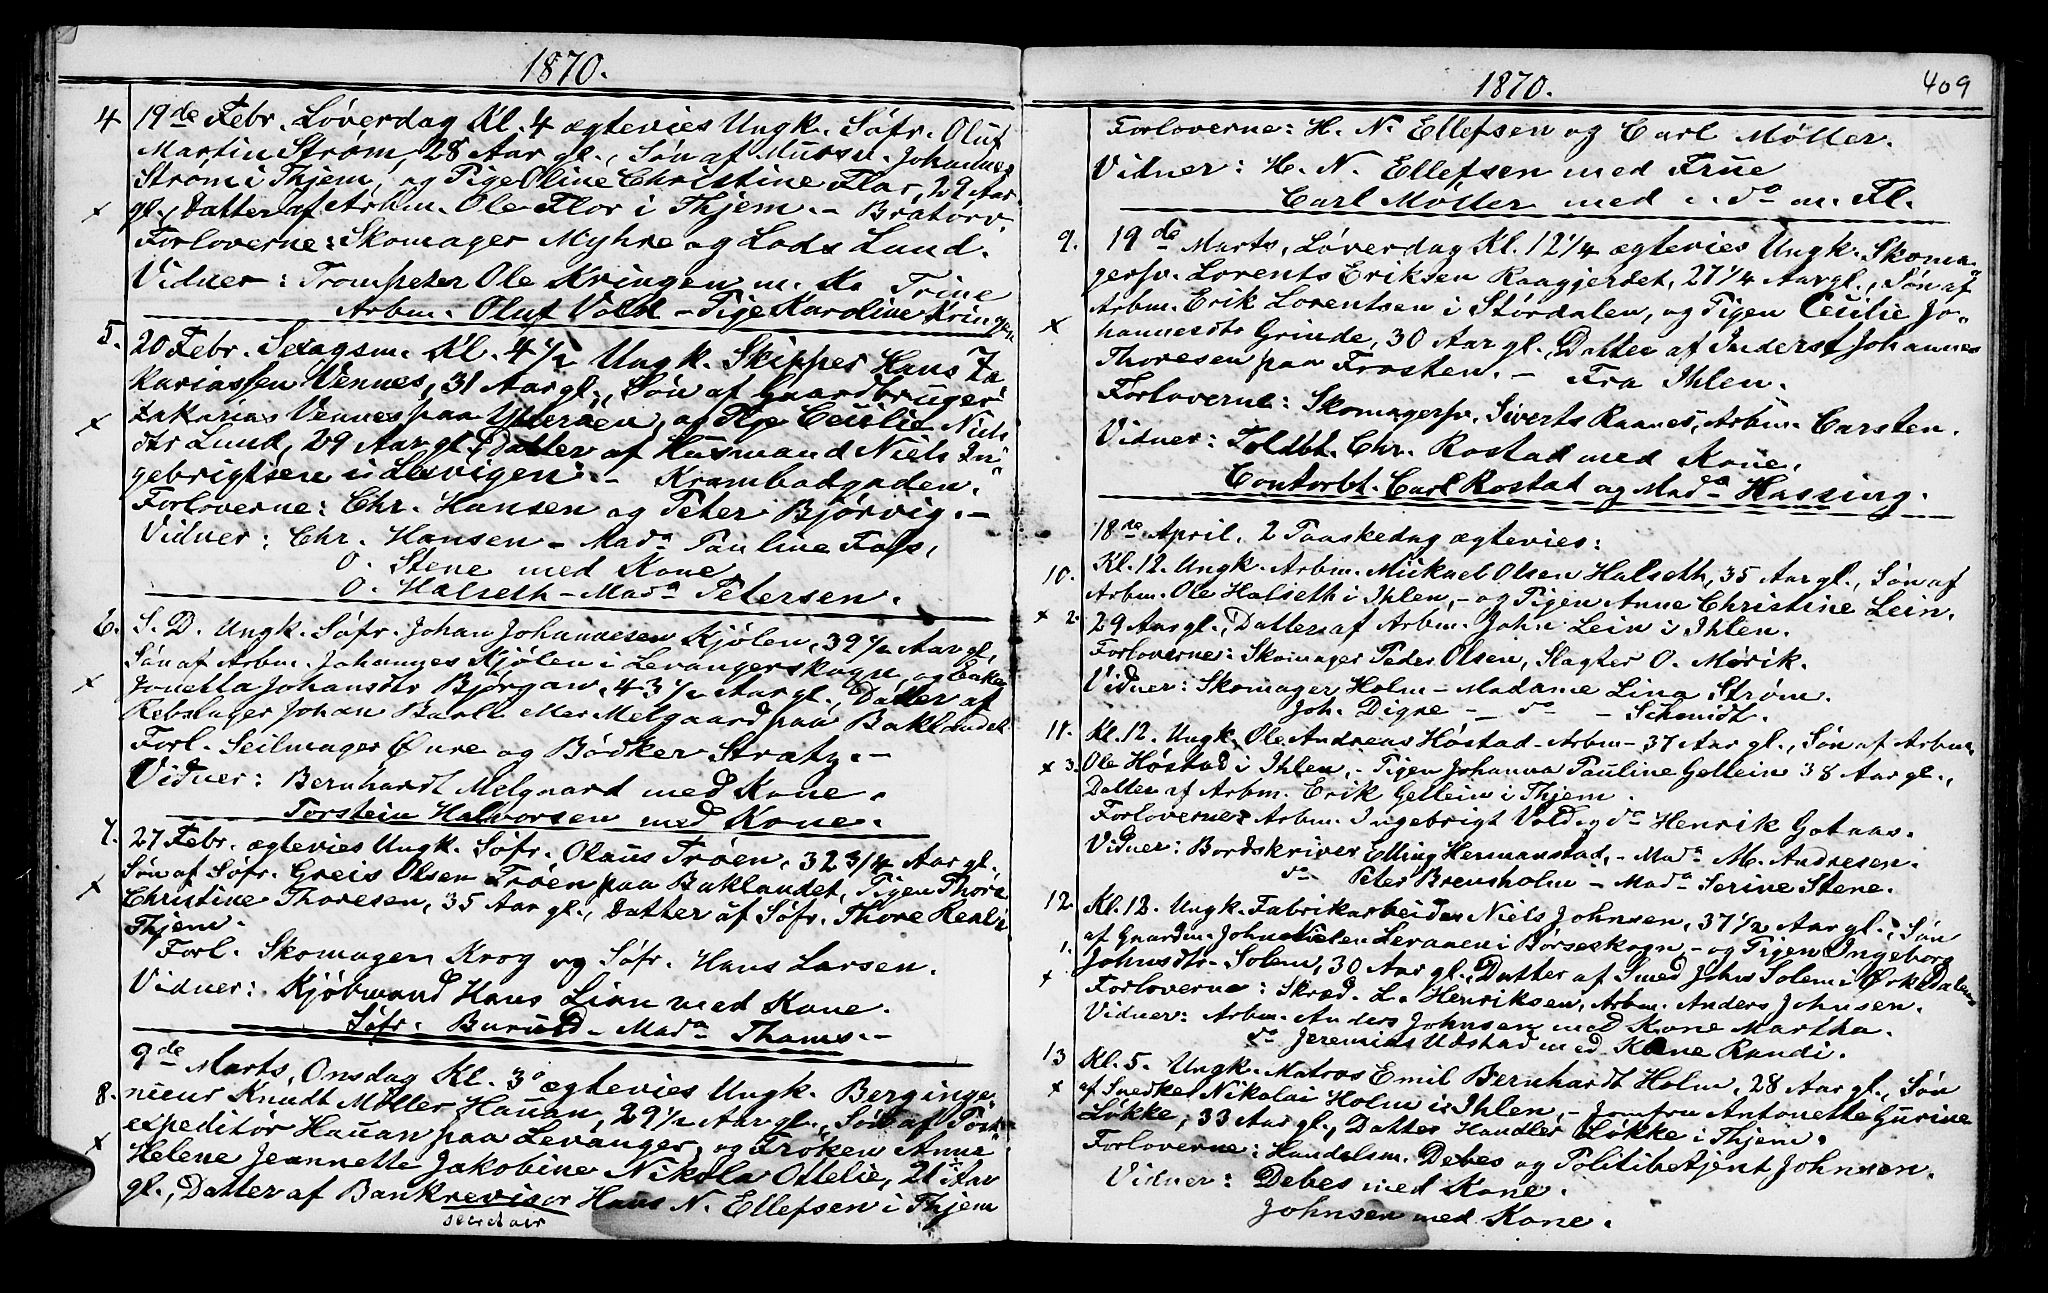 1870.
4 19de Febr. Løverdag Kl. 4 ægtevies Ungk. Søfr. Oluf
Martin Strøm, 28 Aar gl., Søn af Mursv. Johannes
Strøm i Thjem, og Pige Oline Christine Flor, 29 Aar
x gl., Datter af Arbm. Ole Flor i Thjem. – Bratørv.
Forloverne: Skomager Myhre og Lods Lund.
Vidner: Trompeter Ole Kringen m. Ko Trine
Arbm. Oluf Vold – Pige Karoline Kringen
5. 20 Febr. Sexagsm. Kl. 4 1/2 Ungk. Skipper Hans Za-
kariassen Vennes, 31 Aar gl., Søn af Gaardbruger
x Zakarias Vennes paa Ytterøen, og Pige Cecilie Niels
dtr Lund, 29 Aar gl., Datter af Husmand Niels In-
gebrigtsen i Lexvigen. – Krambodgaden.
Forloverne: Chr. Hansen og Peter Bjørvig. –
Vidner: Chr. Hansen – Mada Pauline Fals,
O. Stene med Kone
O. Halseth – Mada Petersen.
6. S. D. Ungk. Søfr. Johan Johannesen Kjølen, 32 1/2 Aar gl,
Søn af Arbm. Johannes Kjølen i Levangerskogn, og Enken
x Jonetta Johansdtr Bjørgan, 43 1/2 Aar gl., Datter af
Rebslager Johan Melgaard paa Baklandet
Forl. Seilmager Øure og Bødker Stratz. –
Vidner: Bernhardt Melgaard med Kone.
Torstein Halvorsen med Kone.
7. 27 Febr. ægtevies Ungk. Søfr. Olaus Trøen, 32 3/4 Aar gl.
Søn af Søfr. Greis Olsen Trøen paa Baklandet, Pigen Thora
x Christine Thoresen, 35 Aar gl., Datter af Søfr. Thore
Thjem.
Forl. Skomager Krog og Søfr. Hans Larsen.
Vidner: Kjøbmand Hans Lian med Kone.
Søfr. Buruld – Mada Thams. –
9de Marts, Onsdag Kl. 3 ægtevies Ungk. Berginge-
8. nieur Knudt Møller Hauan, 29 1/2 Aar gl., Søn af Post-
expeditør Hauan paa Levanger, og Frøken Anne
x Helene Jeannette Jakobine Nikola Ottelie, 21 Aar
gl., Datter af Bankrevisor Hans N. Ellefsen i Thjem
secretair
1870.
409
Forloverne: H. N. Ellefsen og Carl Møller.
Vidner: H. N. Ellefsen med Frue
Carl Møller med do m. Fl.
9. 19de Marts, Løverdag Kl. 12 1/4 ægtevies Ungk. Skoma-
gersv. Lorents Eriksen Raagjerdet, 27 1/4 Aar gl., Søn af
Arbm. Erik Lorentsen i Størdalen, og Pigen Cecilie Jo-
x hannesdtr Grinde, 30 Aar gl., Datter af Inderst Johannes
Thoresen paa Frosten. – Fra Ihlen.
Forloverne: Skomagersv. Siverts Raanes, Arbm. Carsten.
Vidner: Toldbt. Chr. Rostad med Kone.
Contorbt. Carl Rostad og Mada Hassing.
18de April, 2 Paaskedag ægtevies:
10. Kl. 12. Ungk. Arbm. Mickael Olsen Halseth, 35 Aar gl., Søn af
Arbm. Ole Halseth i Ihlen, – og Pigen Anne Christine Lein.
x 2. 29 Aar gl., Datter af Arbm. John Lein i Ihlen.
Forloverne: Skomager Peder Olsen, Slagter O. Mørik.
Vidner: Skomager Holm – Madame Lina Strøm.
Joh. Digre – do – Schmidt.
11. Kl. 12. Ungk. Ole Andreas Høstad – Arbm – 37 Aar gl., Søn af Arbm
x 3. Ole Høstad i Ihlen, – Pigen Johanna Pauline Gellein 38 Aar gl.,
Datter af Arbm. Erik Gellein i Thjem.
Forloverne: Arbm. Ingebrigt Vold og do Henrik Gotaas.
Vidner: Bordskriver Elling Hermanstad, – Mada M. Andresen.
do Peter Brensholm – Mada Serine Stene.
12. Kl. 12. Ungk. Fabrikarbeider Niels Johnsen, 37 1/2 Aar gl., Søn
af Gaardm. John Nielsen i Børseskogn, – og Pigen Ingeborg
1. Johnsdtr Solem, 30 Aar gl., Datter af Smed John Solem i Ørkedalen
x Forloverne: Skræd. L. Henriksen, Arbm. Anders Johnsen.
Vidner: Arbm. Anders Johnsen med Kone Martha.
do Jeremias Udstad med Kone Randi.
13 Kl. 5. Ungk. Matros Emil Bernhardt Holm, 28 Aar gl., Søn
x af Snedker Nikolai Holm i Ihlen, – Jomfru Antonette Gurine
Løkke, 33 Aar gl., Datter Handler Løkke i Thjem.
Forloverne: Handelsm. Debes og Politibetjent Johnsen.
Vidner: Debes med Kone.
Johnsen med Kone.